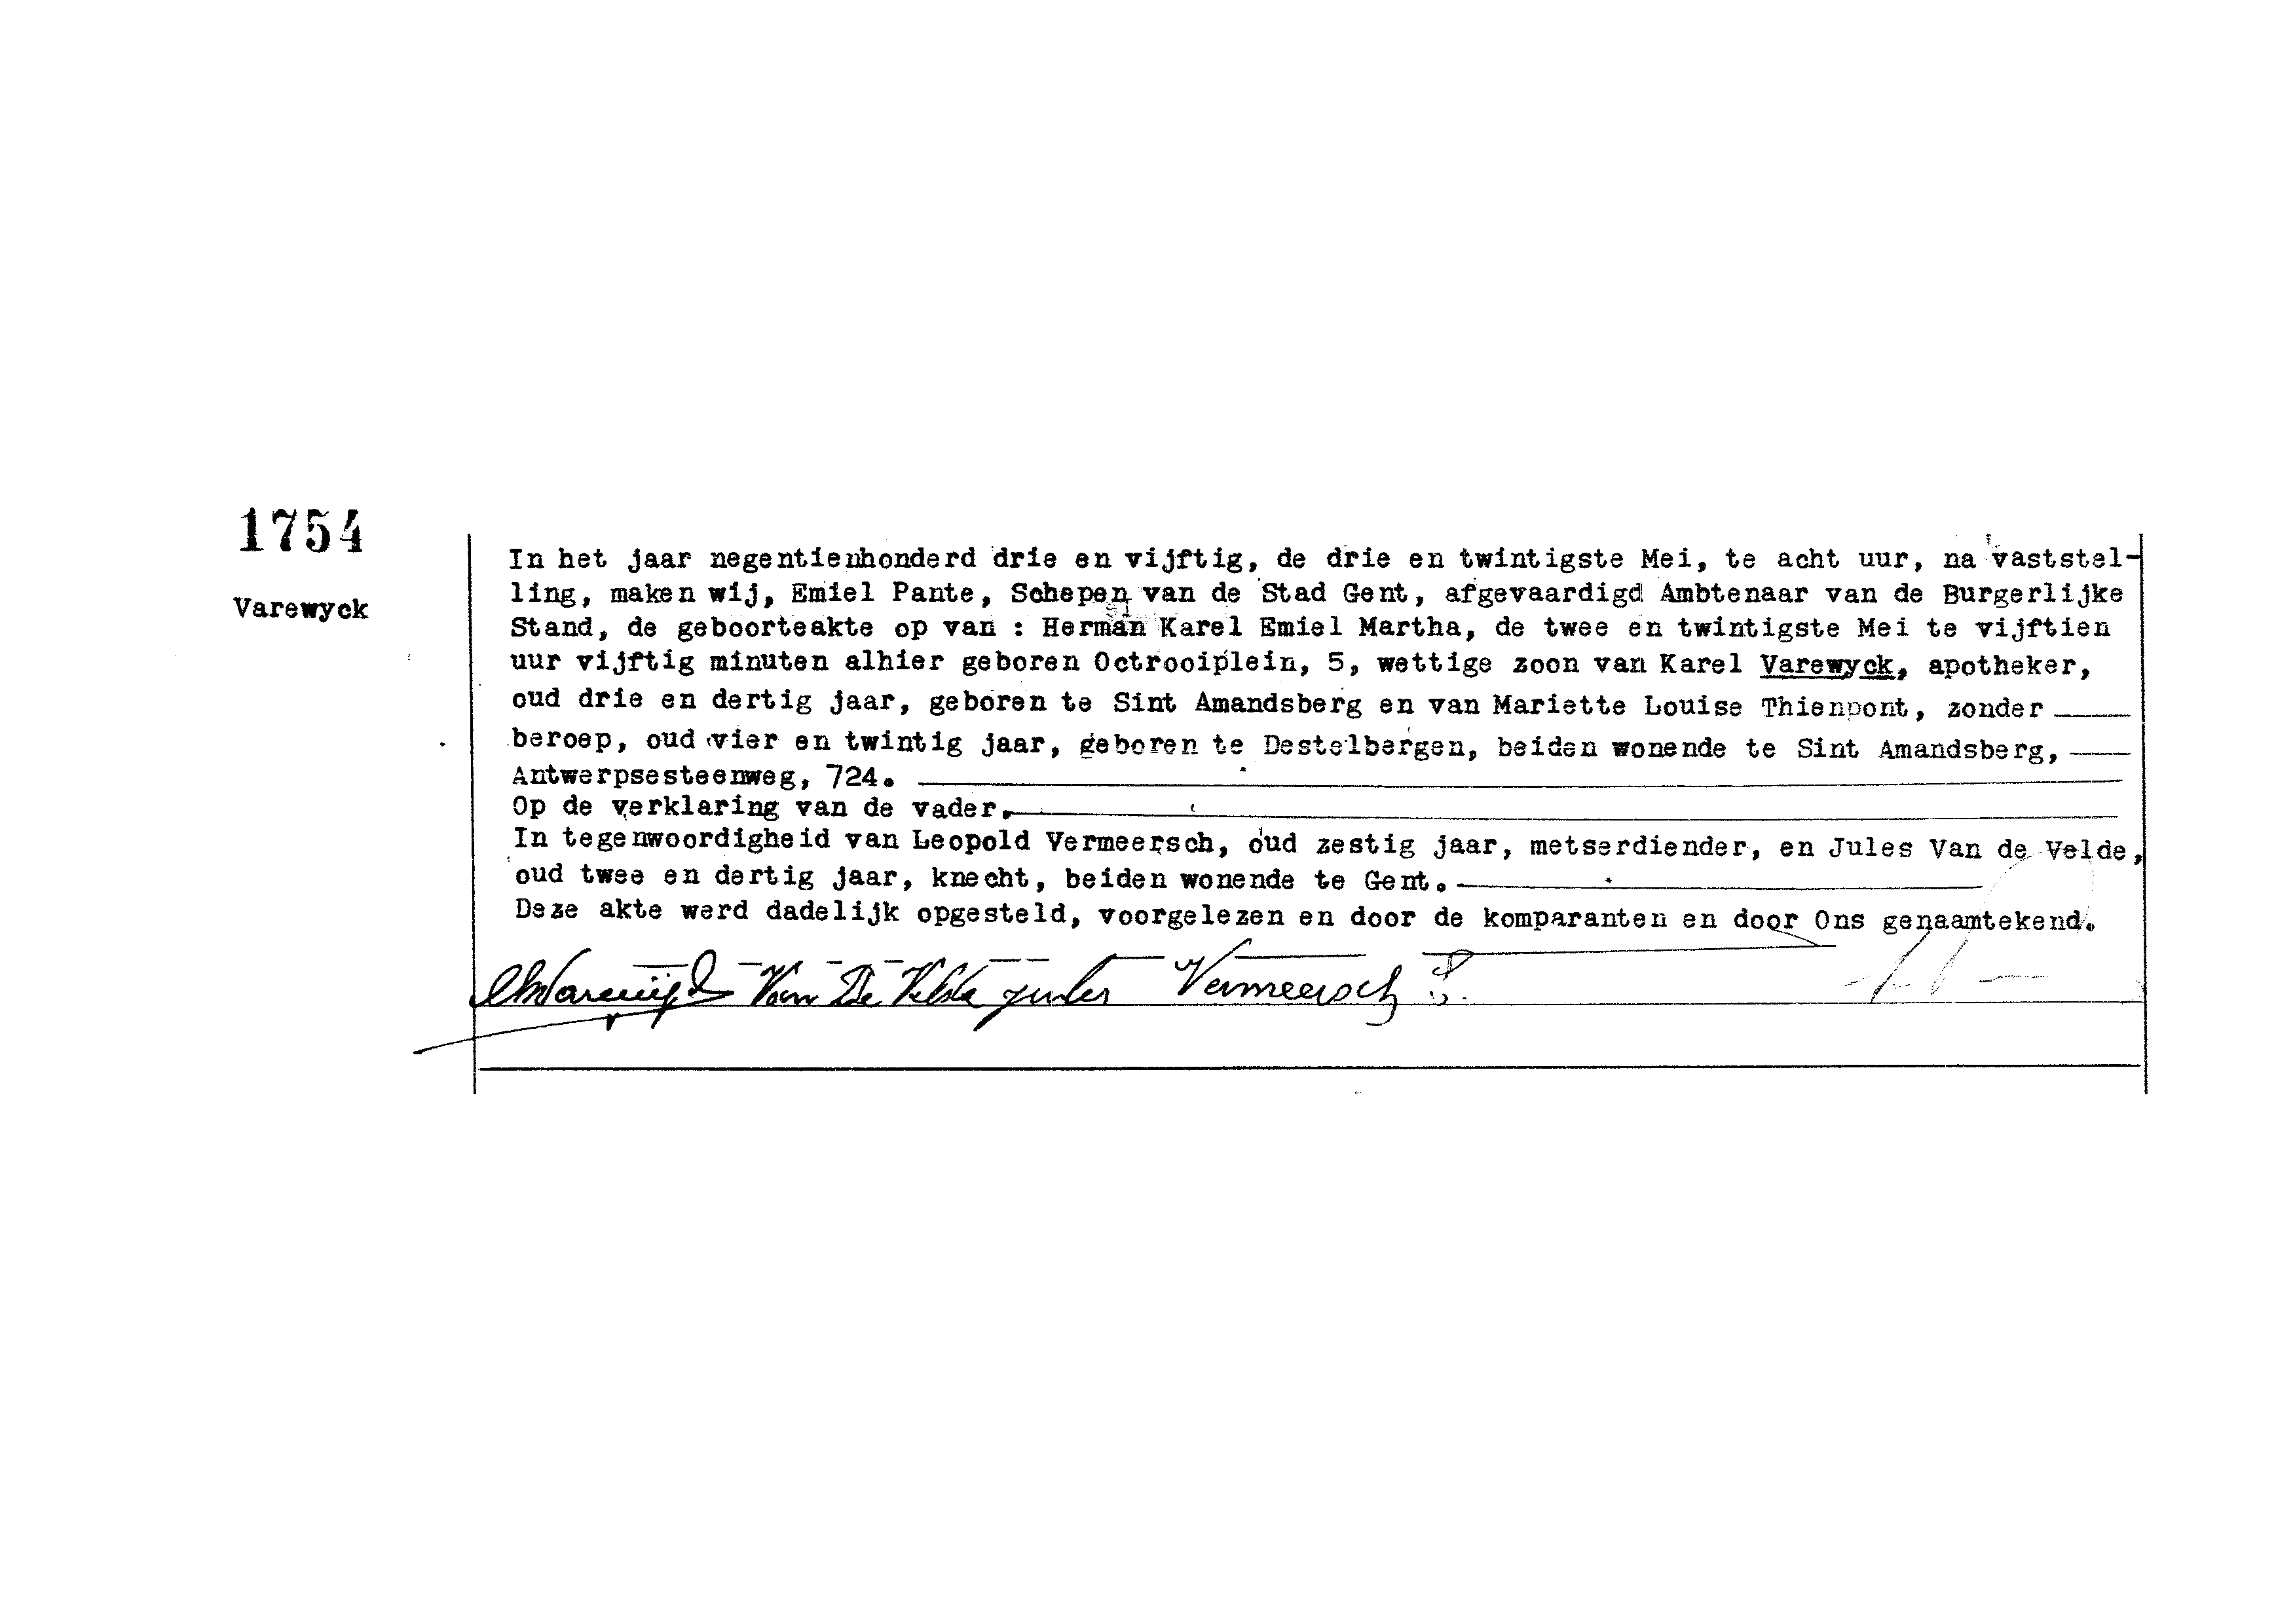 1754
Varewyck
In het jaar negentienhonderd drie en vijftig, de drie en twintigste Mei, te acht uur, na vaststel-
ling, maken wij, Emiel Pante, Schepen van de Stad Gent, afgevaardigd Ambtenaar van de Burgerlijke
Stand, de geboorteakte op van : Herman Karel Emiel Martha, de twee en twintigste Mei te vijftien
uur vijftig minuten alhier geboren Octrooiplein, 5, wettige zoon van Karel Varewyck, apotheker,
oud drie en dertig jaar, geboren te Sint Amandsberg en van Mariette Louise Thienpont, zonder
beroep, oud vier en twintig jaar, geboren te Destelbergen, beiden wonende te Sint Amandsberg,
Antwerpsesteenweg, 724.
Op de verklaring van de vader.
In tegenwoordigheid van Leopold Vermeersch, oud zestig jaar, metserdiender, en Jules Van de Velde,
oud twee en dertig jaar, knecht, beiden wonende te Gent.
Deze akte werd dadelijk opgesteld, voorgelezen en door de komparanten en door Ons genaamtekend.
Van De Velde Jules Vermeersch